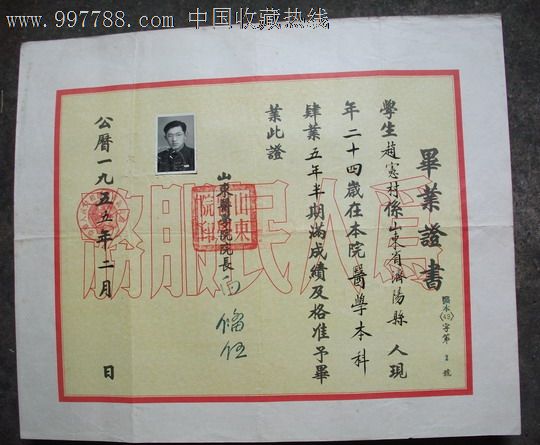 www.997788.com 中国收藏热线
畢業證書
醫本(49)字第1號
學生趙憲村係山東省濟陽縣人現
年二十四歲在本院醫學本科
肄業五年半期滿成績及格准予畢
業此證
山東醫學院院長
山東
院印
公曆一九五五年二月 日
為人民服務